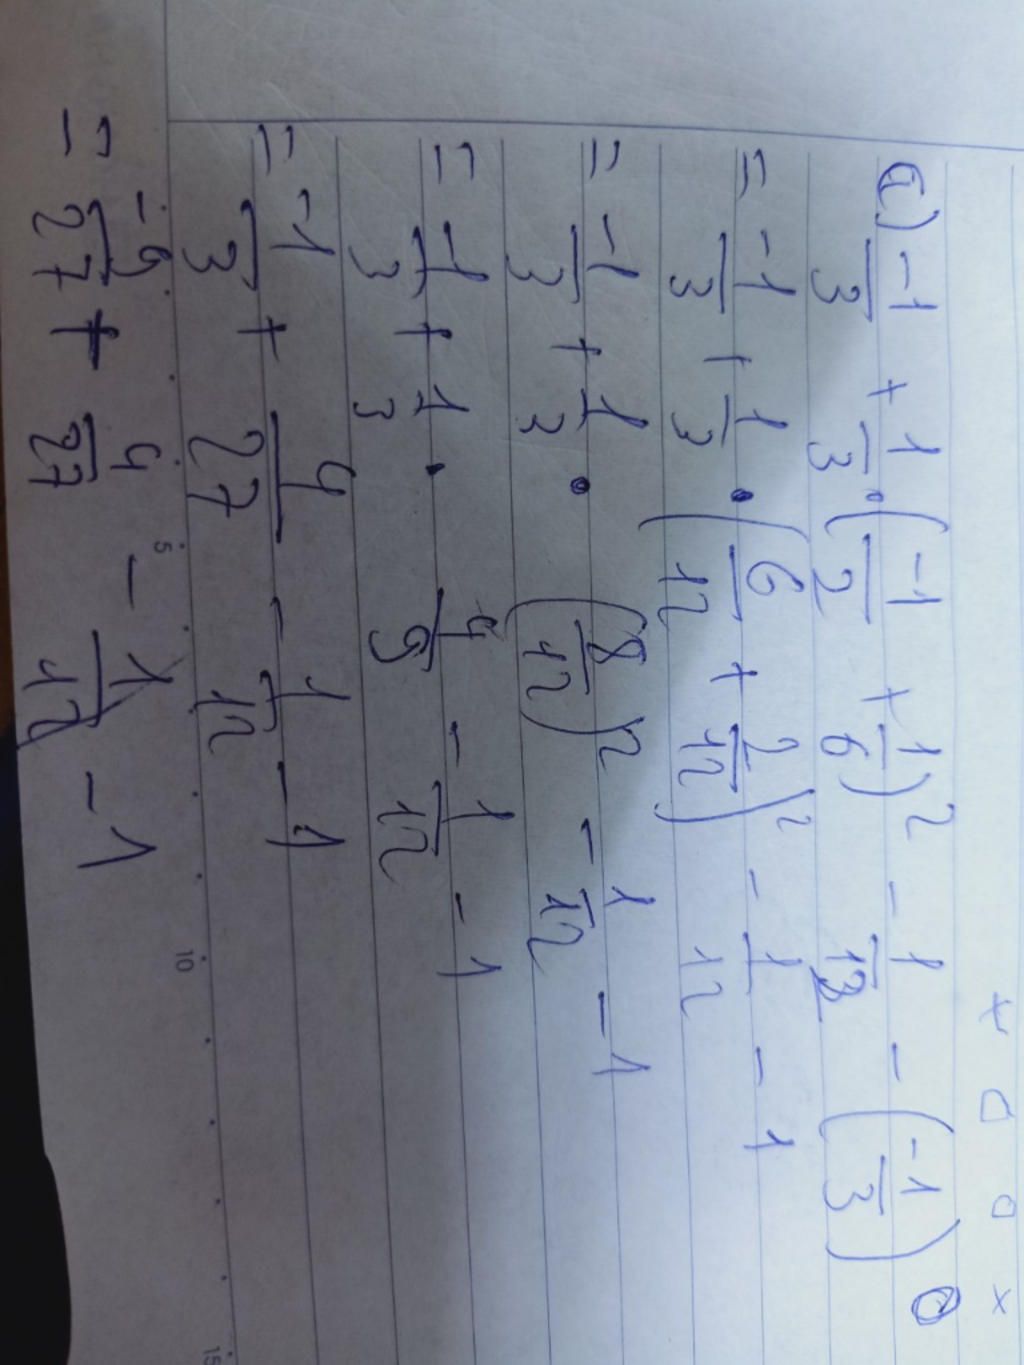 × □ □ ×
a) -1/3 + 1/3 · (-1/2 + 1/6)² - 1/12 - (-1/3)⁰
= -1/3 + 1/3 · (6/12 + 2/12)² - 1/12 - 1
= -1/3 + 1/3 · (8/12)² - 1/12 - 1
= -1/3 + 1/3 · 4/9 - 1/12 - 1
= -1/3 + 4/27 - 1/12 - 1
= -9/27 + 4/27 - 1/12 - 1
5 10 15